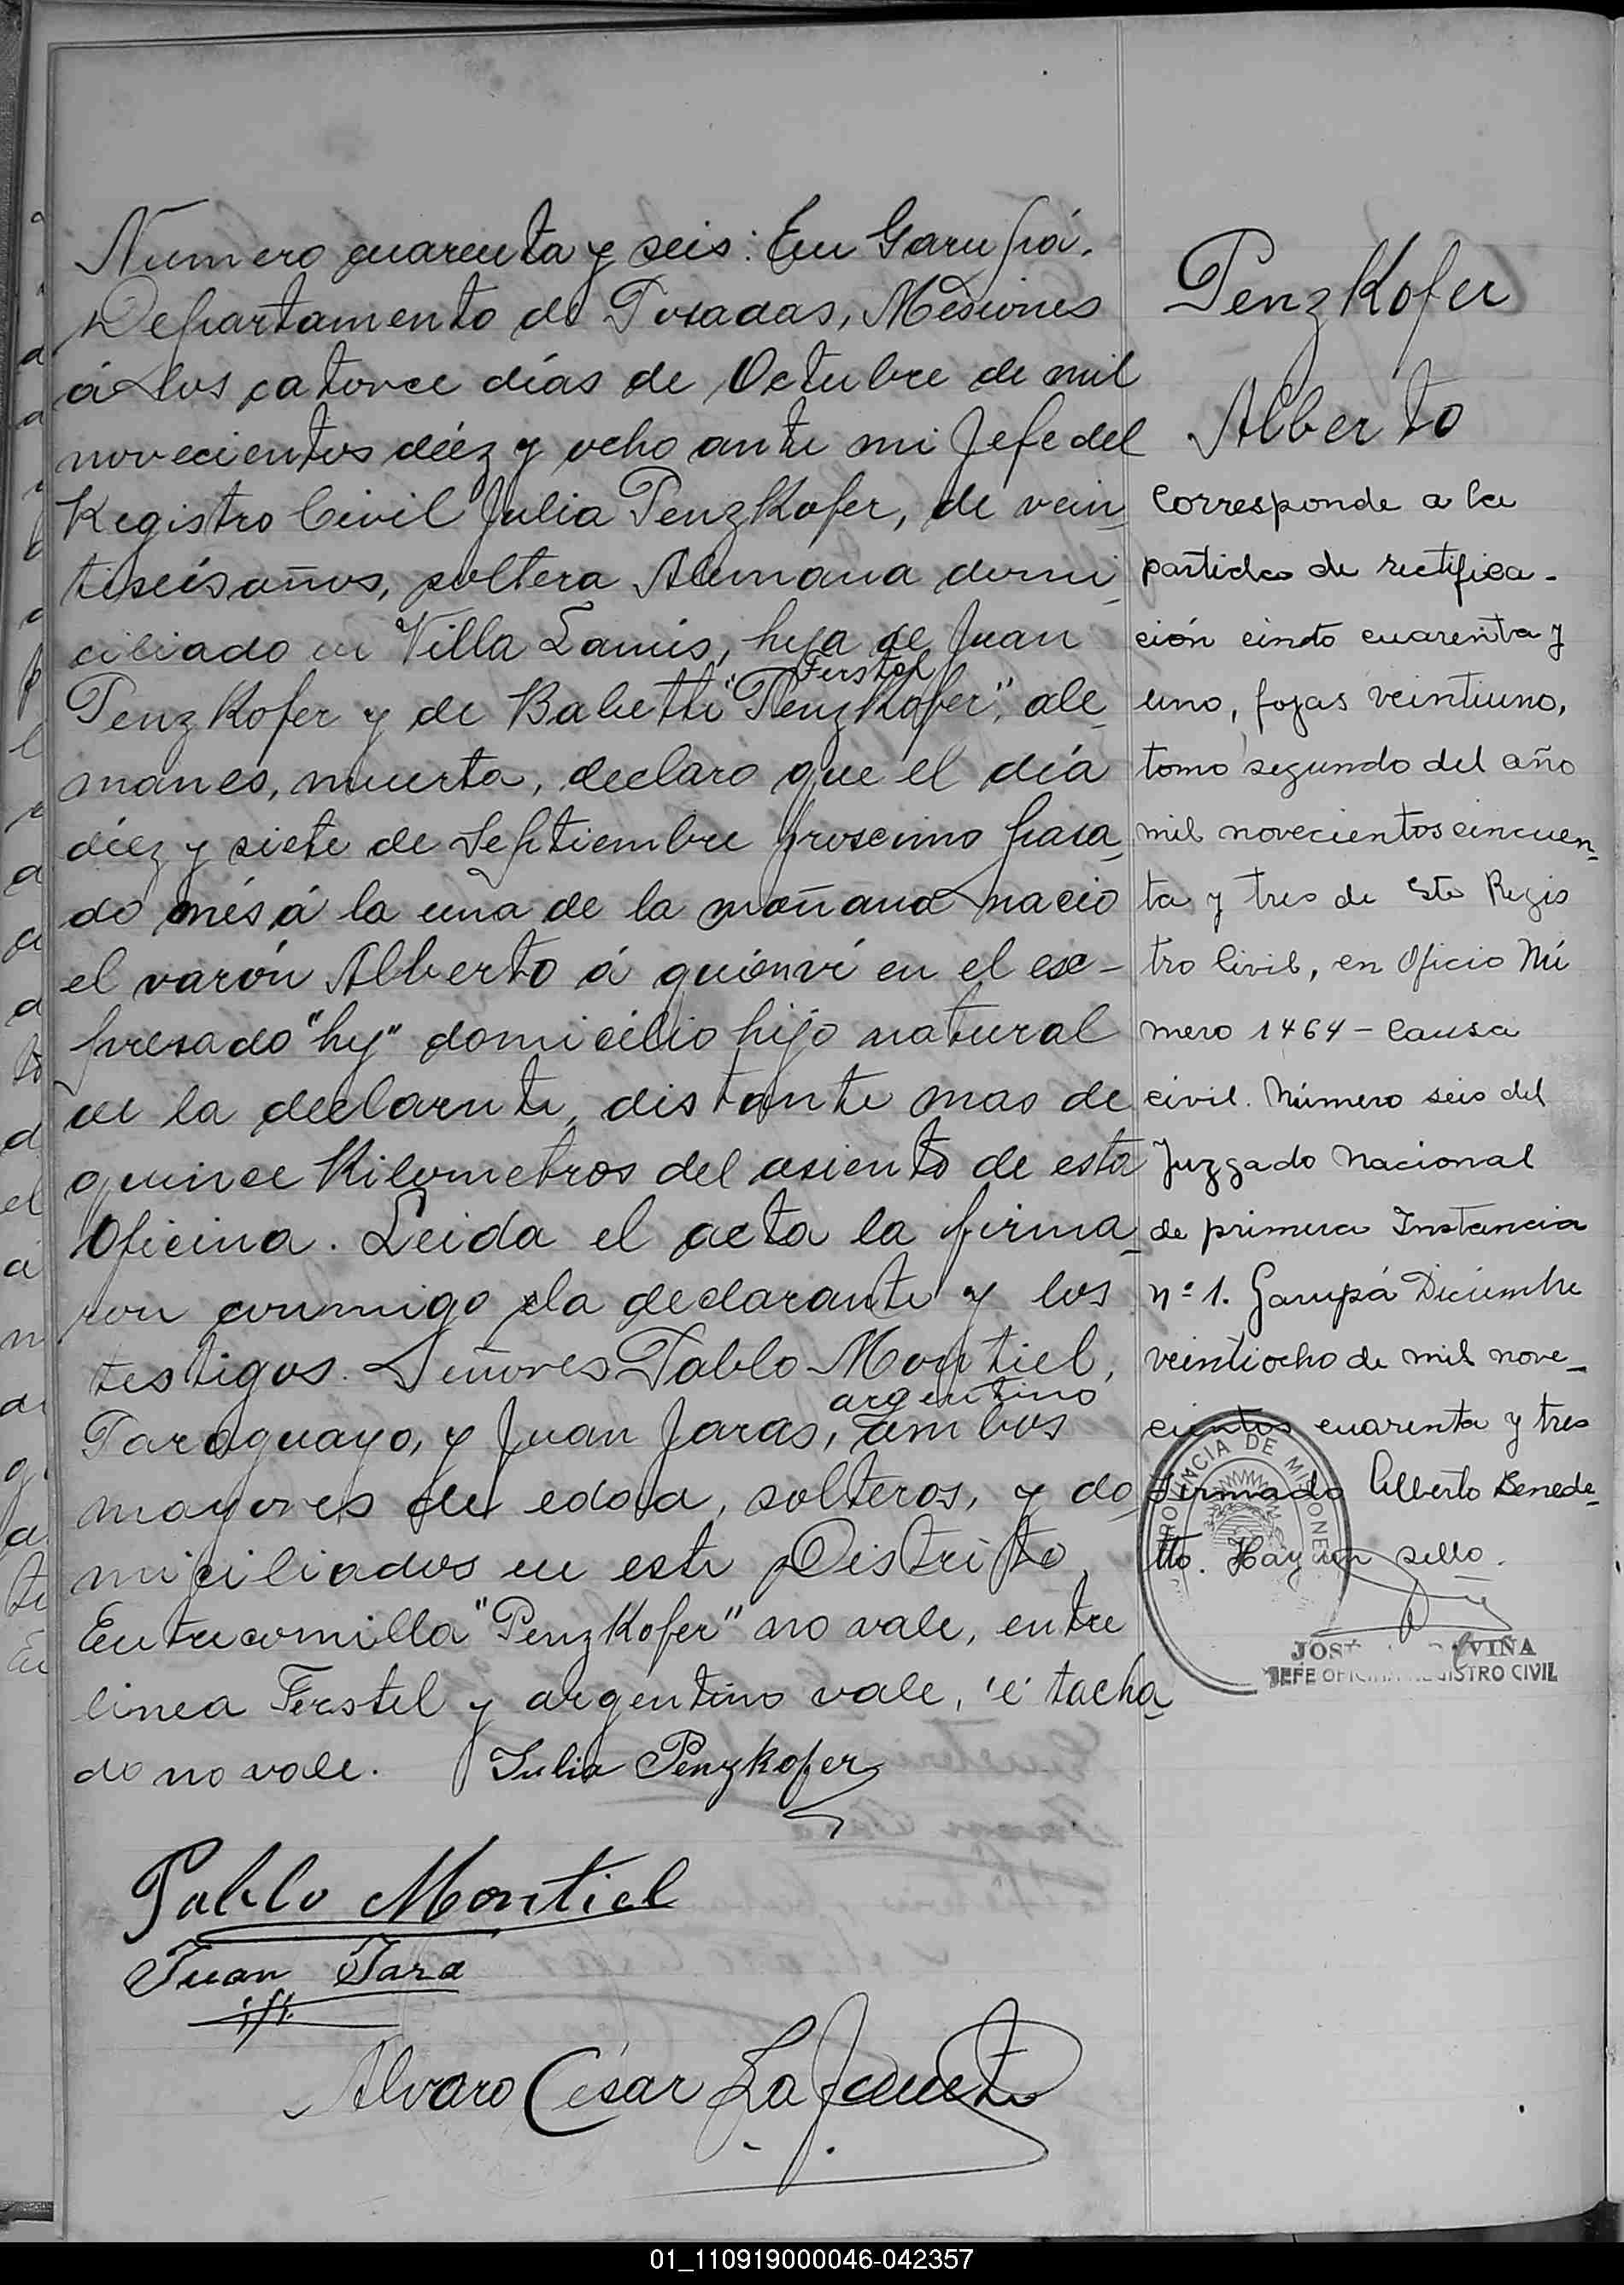 Numero cuarenta y seis: En Garupá.
Departamento de Posadas, Mesiones
á los catorce días de Octubre de mil
novecientos diéz y ocho ante mi Jefe del
Registro Civil Julia PenzKofer, de vein
tiseis años, soltera Alemana domi
ciliado en Villa Lanús, hija de Juan
Ferstel
PenzKofer y de Babette "PenzKofer", ale
manes, muerta, declaro que el día
diéz y siete de Septiembre prosemo pasa
do més á la una de la mañana nacio
el varón Alberto á quién ví en el ex-
presado "hy" domicilio hijo natural
de la declarnte, distante mas de
quince Kilometros del asiento de esta
Oficina. Leida el acta la firma
ron conmigo la declarante y los
testigos. Señores Pablo Montiel,
argentino
Paraguayo, y Juan Jaras, ambos
mayores de edad, solteros, y do
miciliados en este Distrito
Entrecomilla "PenzKofer" no vale, entre
linea Ferstel y argentino vale, 'e' tacha
do no vale. Julia Penzkofer
Pablo Montiel
Juan Jara
Alvaro César La
PenzKofer
Alberto
Corresponde a la
partida de rectifica-
ción ciento cuarenta y
uno, fojas veintiuno,
tomo segundo del año
mil novecientos cincuen
ta y tres de Este Regis
tro Civil, en Oficio Nú
mero 1464 - Causa
civil. Número seis del
Juzgado Nacional
de primera Instancia
nº 1. Garupá Diciembre
veintiocho de mil nove-
cientos cuarenta y tres
Firmado Alberto Benede-
tto. Hay un sello.
PROVINCIA DE MISIONES
JOSE VIÑA
JEFE OFICINA REGISTRO CIVIL
01_110919000046-042357